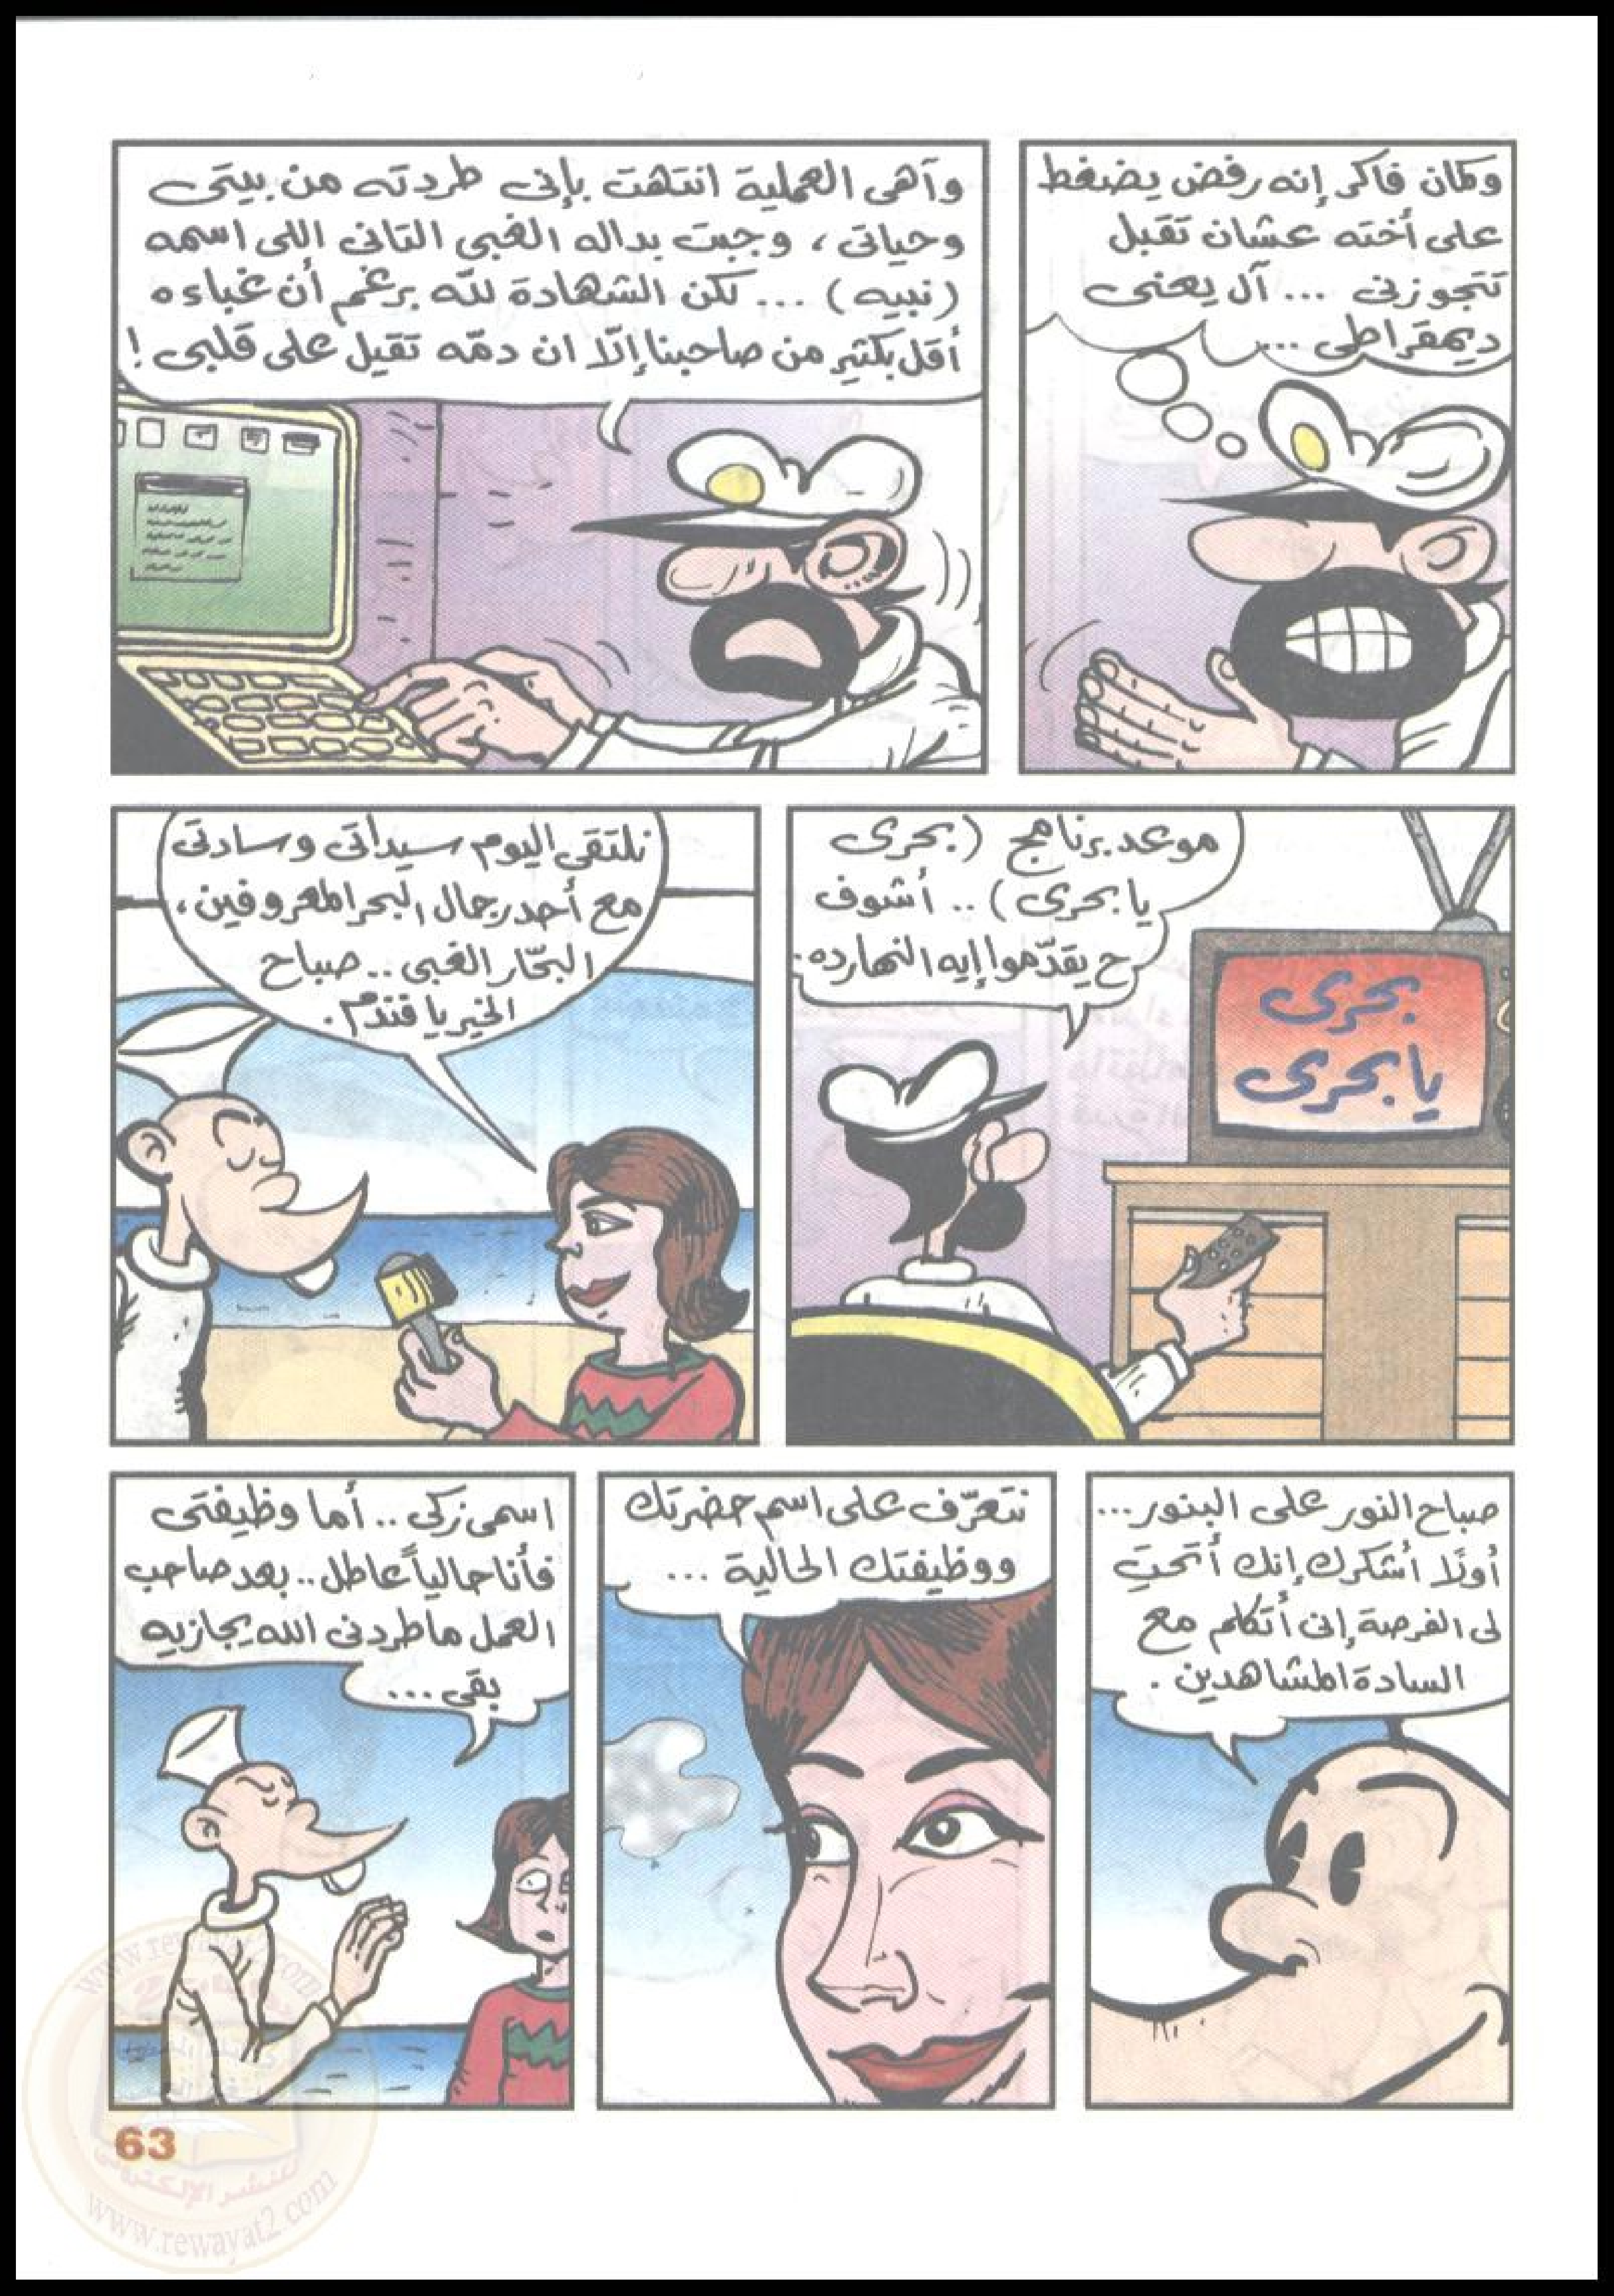 وكمان فاكر إنه رفض يضغط
على أخته عشان تقبل
تتجوزنى ... آل يعنى
ديمقراطى ...
وآهى العملية انتهت بإنى طردته من بيتى
وحياتى ، وجبت بداله الغبى التانى اللى اسمه
(نبيه) ... لكن الشهادة لله برغم أن غباءه
أقل بكتير من صاحبنا إلّا ان دمّه تقيل على قلبى !
موعد برنامج (بحرى
يا بحرى) .. أشوف
ح يقدّموا إيه النهارده.
بحرى
يا بحرى
نلتقى اليوم سيداتى وسادتى
مع أحد رجال البحر المعروفين،
البحّار الغبى .. صباح
الخير يا فندم.
صباح النور على البنور...
أولًا أشكرك إنك أتحتِ
لى الفرصة إنى أتكلم مع
السادة المشاهدين .
نتعرّف على اسم حضرتك
ووظيفتك الحالية ...
اسمى زكى .. أما وظيفتى
فأنا حالياً عاطل .. بعد صاحب
العمل ما طردنى الله يجازيه
بقى ...
63
www.rewayat2.com
للنشر الإلكترونى
www.rewayat2.com